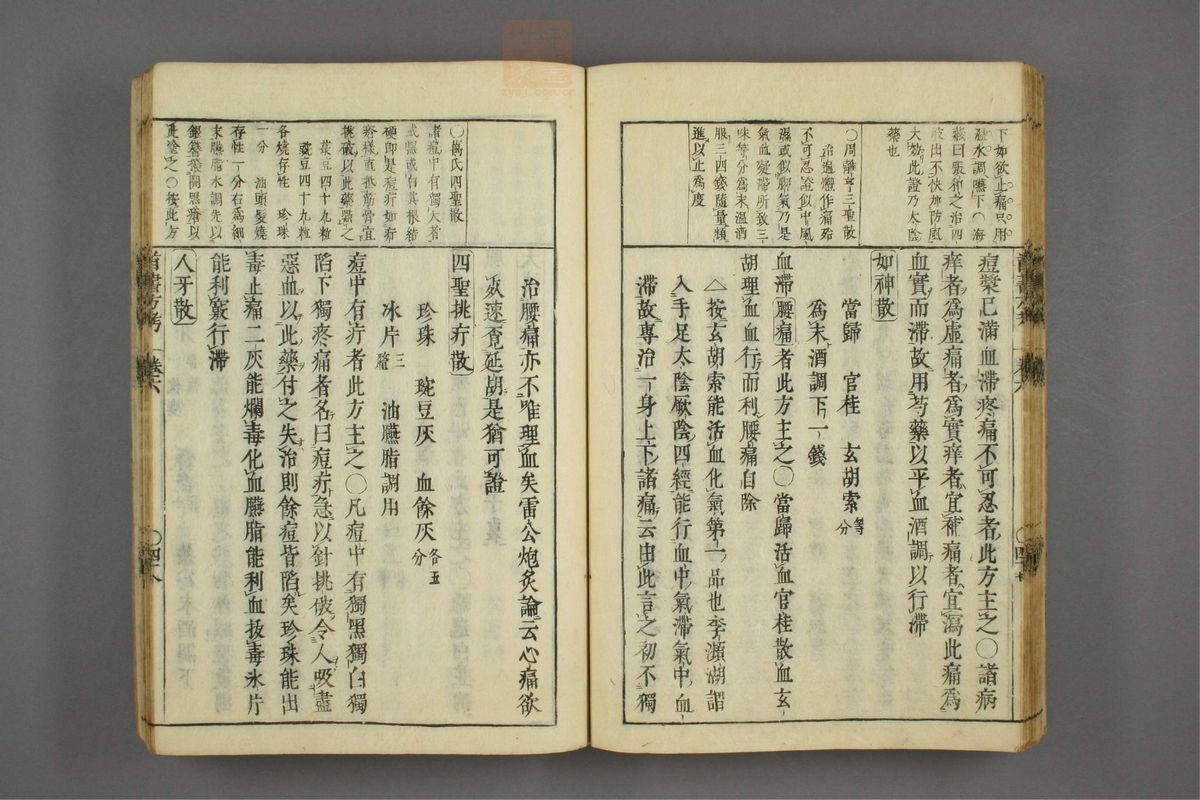 下如欲止痛只用
溫水調嚥下〇海
藏曰張和之治四
肢出不快加防風
大効此證乃太陰
藥也
〇周離亨三聖散
治遍體作痛殆
不可忍證似中風
濕或似脚氣乃是
氣血凝滯所致三
味等分爲末溫酒
服三四錢隨量頻
進以止爲度
痘漿已滿血滯疼痛不可忍者此方主之〇諸病
痒者爲虛痛者爲實痒者宜補痛者宜瀉此痛爲
血實而滯故用芍藥以平血酒調以行滯
如神散
當歸 官桂 玄胡索等分
爲末酒調下一錢
血滯腰痛者此方主之〇當歸活血官桂散血玄
胡理血血行而利腰痛自除
△按玄胡索能活血化氣第一品也李瀕湖謂
入手足太陰厥陰四經能行血中氣滯氣中血
滯故專治一身上下諸痛云由此言之初不獨
卷六
〇四七
〇萬氏四聖散
諸痘中有獨大者
或黑或白其根結
硬即是痘疔如疔
疼樣直抵筋骨宜
挑破以此藥罨之
菉豆四十九粒
豌豆四十九粒
各燒存性 珍珠
一分 油頭髮燒
存性一分右爲細
末臙脂水調先以
銀簪撥開黑瘡以
此塗之〇按此方
治腰痛亦不唯理血矣雷公炮炙論云心痛欲
死速覓延胡是猶可證
四聖挑疔散
珍珠 豌豆灰 血餘灰各五分
冰片三釐 油臙脂調用
痘中有疔者此方主之〇凡痘中有獨黑獨白獨
陷下獨疼痛者名曰痘疔急以針挑破令人吸盡
惡血以此藥付之失治則餘痘皆陷矣珍珠能出
毒止痛二灰能爛毒化血臙脂能利血拔毒冰片
能利竅行滯
人牙散
卷六
〇四八